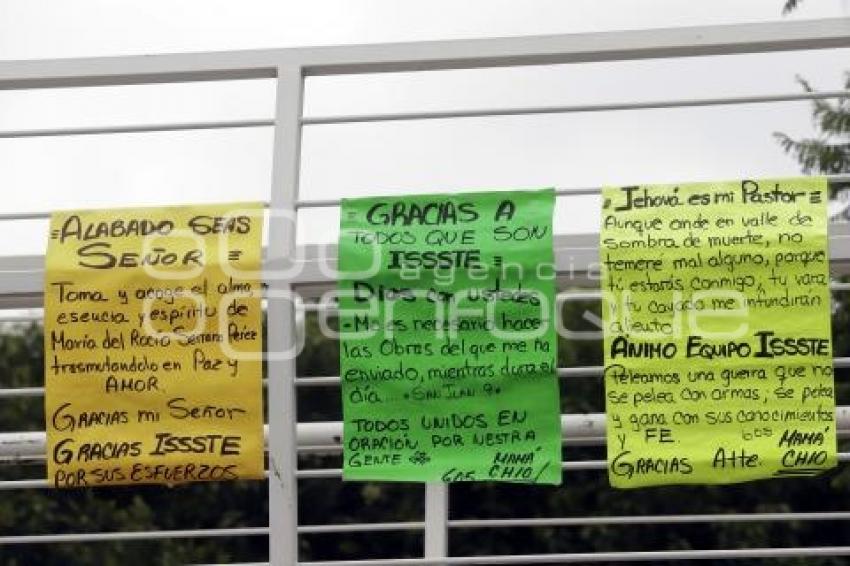 ALABADO SEAS
SEÑOR =
Toma y acoge el alma
esencia y espíritu de
María del Rocío Serrano Pérez
trasmutándolo en Paz y
AMOR.
GRACIAS mi Señor
GRACIAS ISSSTE
POR SUS ESFUERZOS
=GRACIAS A =
TODOS QUE SON
ISSSTE =
DIOS con ustedes
-Me es necesario hacer
las Obras del que me ha
enviado, mientras dura el
día.... -SAN JUAN 9-
TODOS UNIDOS EN
ORACIÓN POR NESTRA
GENTE
MAMÁ
CHIO/
=Jehová es mi PASTOR=
Aunque ande en valle de
sombra de muerte, no
temeré mal alguno, porque
tú estarás conmigo, tu vara
y tu cayado me infundirán
aliento
ANIMO EQUIPO ISSSTE
Peleamos una guerra que no
se pelea con armas, se pelea
y gana con sus conocimientos
y FE.
MAMÁ
Gracias Atte. CHIO
agencia
enfoque